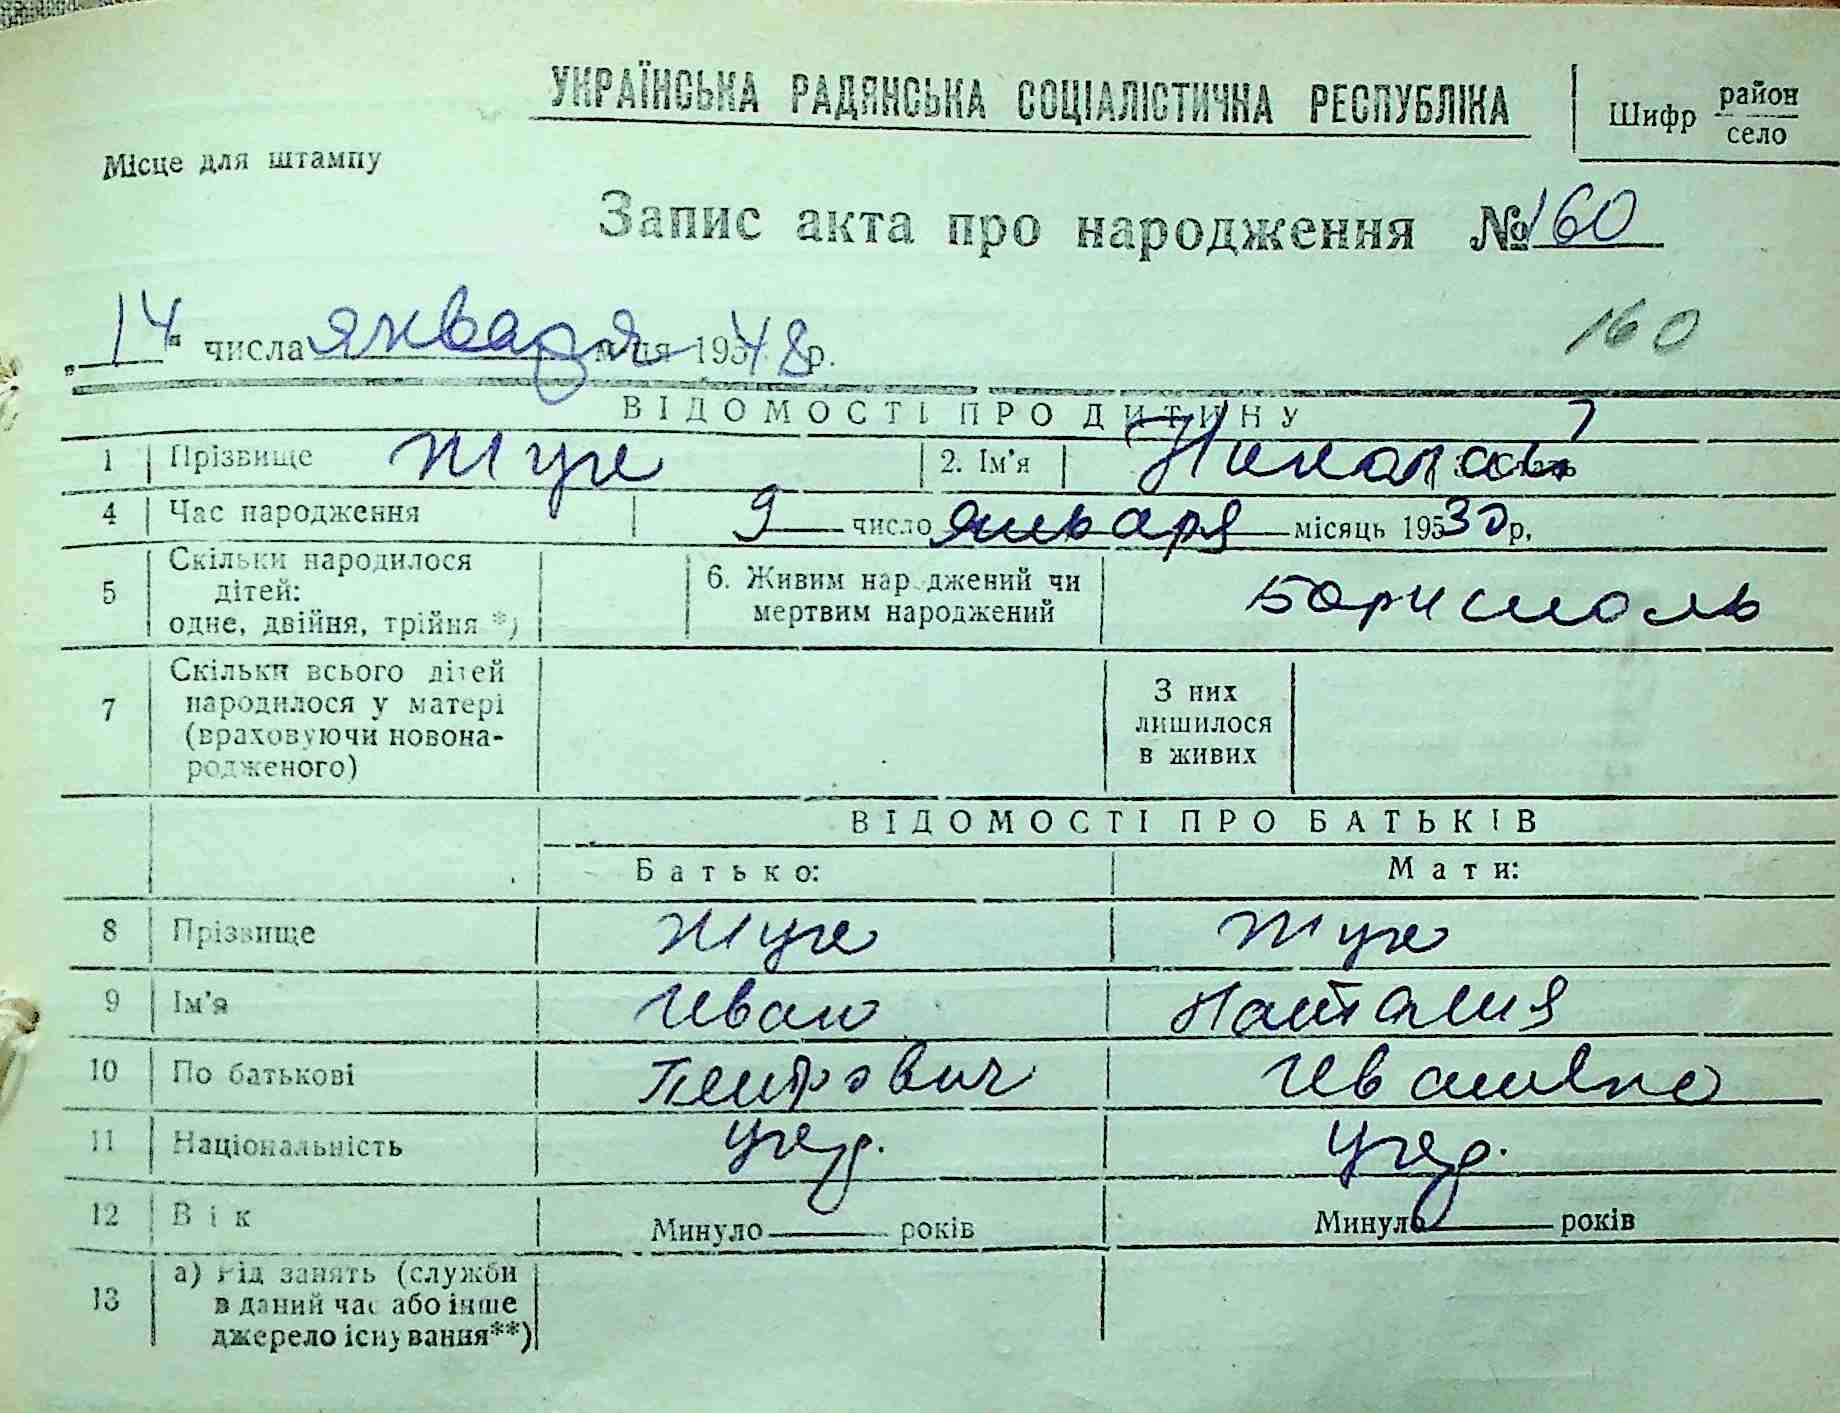 УКРАЇНСЬКА РАДЯНСЬКА СОЦІАЛІСТИЧНА РЕСПУБЛІКА
Шифр район
село
Місце для штампу
Запис акта про народження № 160
160
„14" числа января м-ця 195 48 р.
ВІДОМОСТІ ПРО ДИТИНУ
1 Прізвище Жук 2. Ім'я Николай
4 Час народження 9 число января місяць 195 30 р.
5 Скільки народилося дітей: одне, двійня, трійня *) 6. Живим народжений чи мертвим народжений Борисполь
7 Скільки всього дітей народилося у матері (враховуючи новонародженого) З них лишилося в живих
ВІДОМОСТІ ПРО БАТЬКІВ
Батько: Мати:
8 Прізвище Жук Жук
9 Ім'я Иван Наталия
10 По батькові Петрович Ивановна
11 Національність укр. укр.
12 Вік Минуло років Минуло років
13 а) Рід занять (служби в даний час або інше джерело існування**)